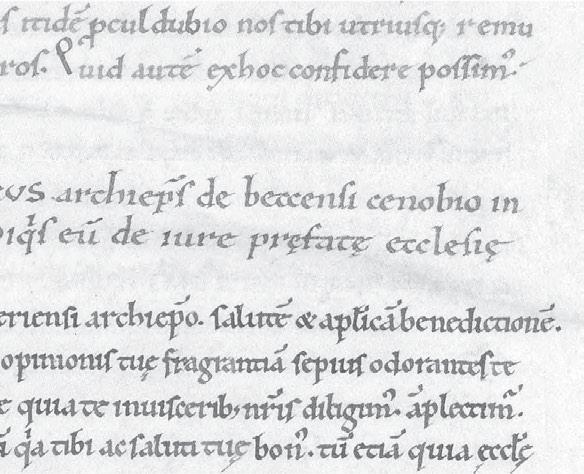 s itidē ꝓculdubio nos tibi utriusq; remu
ros. Quid autē exhoc confidere possim᷒.
cus archiep̄s de beccensi cenobio in
iq̇s eū de iure pręfatę ecclesię
eriensi archiep̄o. salutē & aplīcā benedictionē.
opinionis tuę fragrantiā sepius odorantes te
e quia te inuiscerib; nr̄is diligim᷒. āplectim᷒.
ā q̇a tibi ac saluti tuę bon᷒. tū etiā quia ecclę